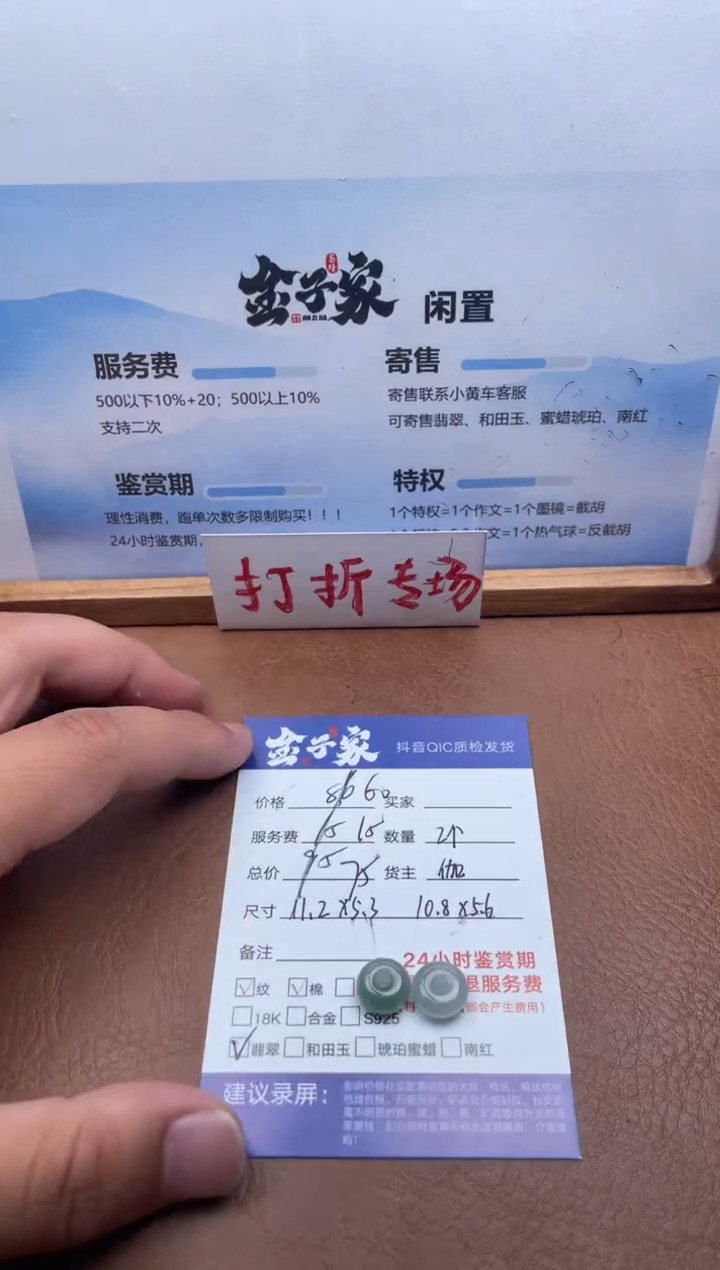 金子家 闲置
服务费
500以下10%+20；500以上10%
支持二次
寄售
寄售联系小黄车客服
可寄售翡翠、和田玉、蜜蜡琥珀、南红
鉴赏期
理性消费，跑单次数多限制购买！！！
24小时鉴赏期,
特权
1个特权=1个作文=1个墨镜=截胡
作文=1个热气球=反截胡
打折专场
金子家 抖音QIC质检发货
价格 80 60 买家
服务费 15 15 数量 2个
总价 95 75 货主 伽
尺寸 11.2×5.3 10.8×5.6
备注
24小时鉴赏期
退服务费
都会产生费用)
纹 棉
18K 合金 S925
翡翠 和田玉 琥珀蜜蜡 南红
建议录屏：